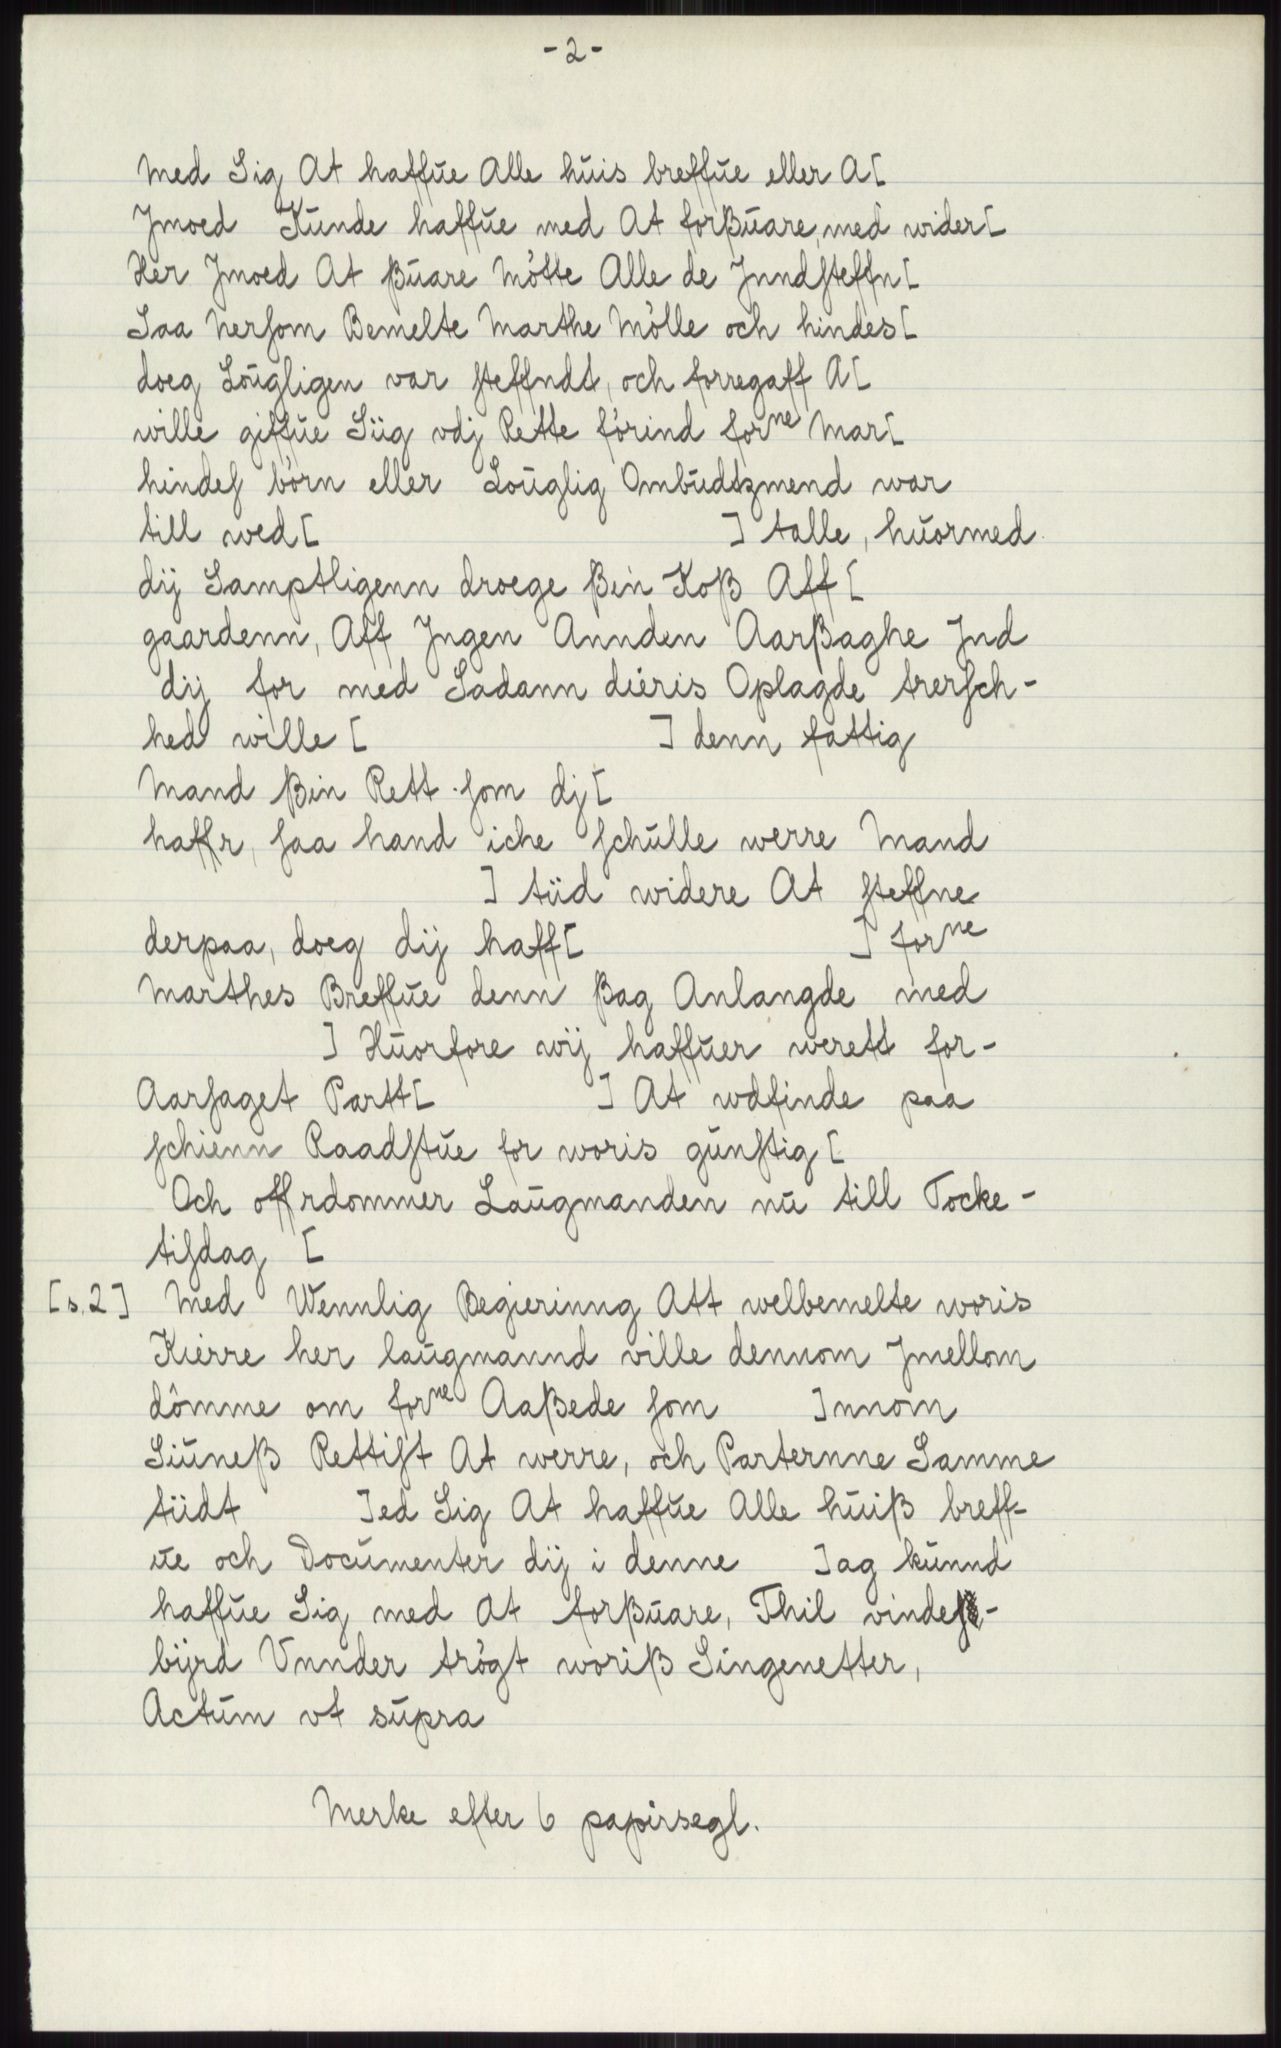 -2-
Med Sig At haffŭe Alle hŭis breffŭe eller A[
Jmoed Kŭnde haffŭe med At forßŭare, med wider[
Her Jmoed At ßŭare Mötte Alle de Jnndſteffn[
Saa Nerſom Bemelte Marthe Mölle och hindes[
doeg Loŭgligen var ſteffndt, och forregaff A[
wille giffŭe Siig vdj Rette förind forne Mar[
hindeſ börn eller Loŭglig Ombŭdtzmend war
till wed[ ] talle, hŭormed
dij Samptligenn droege ßein Koß Aff[
gaardenn, Aff Jngen Annden Aarßaghe Jnd
dij for med Sadann diéris Oplagde trerſch-
hed wille [ ] denn fattig
Mand ßin Rett ſom dj[
haffr, ſaa hand iche ſchŭlle werre Mand
] tiid widere At ſteffne
derpaa, doeg dij haff[ ] forne
Marthes Breffŭe denn ßag Anlangde med
] Hŭorfore wij haffŭer werett for-
Aarſaget Partt[ ] At wdfinde paa
ſchienn Raadſtŭe for woris gŭnſtig[
Och offrdommer Laŭgmanden nŭ till Tocke-
tiſdag [
[s. 2] Med Wennlig Begierinng Att welbemelte woris
Kierre her laŭgmannd ville dennom Jmellom
dömme om forne Aaßede ſom ]nnom
Siŭneß Rettiſt At werre, och Parternne Samme
tiidt ]ed Sig At haffŭe Alle hŭiß breff-
ŭe och Documenter dij i denne ]ag kŭnnd
haffŭe Sig med At forßŭare, Thil vindeſ-
bijrd Vnnder trögt woriß Singenetter,
Actŭm vt sŭpra
Merke efter 6 papirsegl.